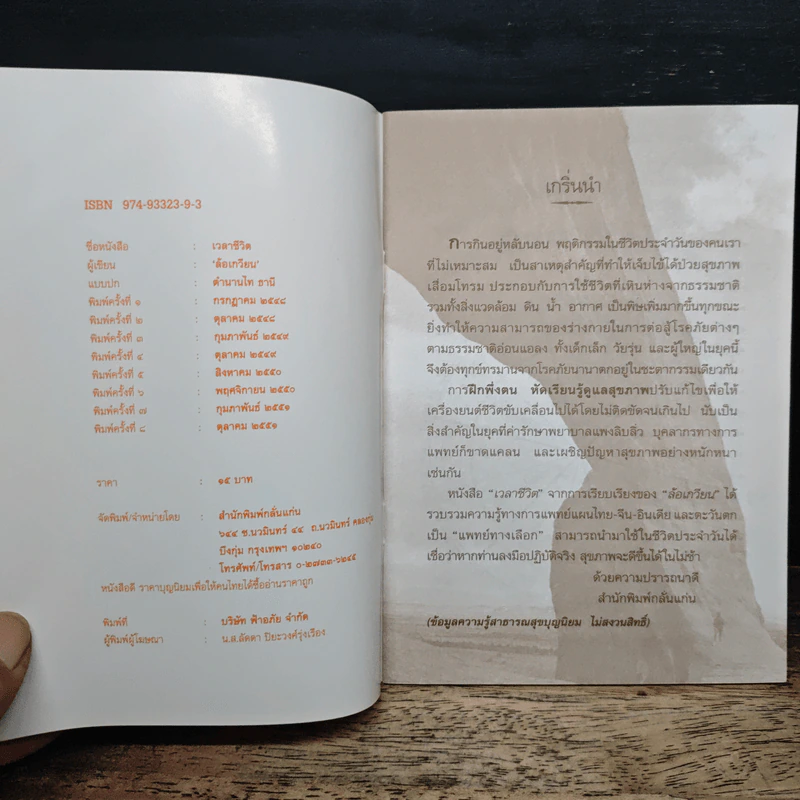 ISBN 974-93323-9-3
ชื่อหนังสือ : เวลาชีวิต
ผู้เขียน : 'ล้อเกวียน'
แบบปก : ตำนานไท ธานี
พิมพ์ครั้งที่ ๑ : กรกฎาคม ๒๕๔๘
พิมพ์ครั้งที่ ๒ : ตุลาคม ๒๕๔๘
พิมพ์ครั้งที่ ๓ : กุมภาพันธ์ ๒๕๔๙
พิมพ์ครั้งที่ ๔ : ตุลาคม ๒๕๔๙
พิมพ์ครั้งที่ ๕ : สิงหาคม ๒๕๕๐
พิมพ์ครั้งที่ ๖ : พฤศจิกายน ๒๕๕๐
พิมพ์ครั้งที่ ๗ : กุมภาพันธ์ ๒๕๕๑
พิมพ์ครั้งที่ ๘ : ตุลาคม ๒๕๕๑
ราคา : ๑๕ บาท
จัดพิมพ์/จำหน่ายโดย : สำนักพิมพ์กลั่นแก่น
๖๔๔ ซ.นวมินทร์ ๔๔ ถ.นวมินทร์ คลองกุ่ม
บึงกุ่ม กรุงเทพฯ ๑๐๒๔๐
โทรศัพท์/โทรสาร ๐-๒๗๓๓-๖๒๔๕
หนังสือดี ราคาบุญนิยมเพื่อให้คนไทยได้ซื้ออ่านราคาถูก
พิมพ์ที่ : บริษัท ฟ้าอภัย จำกัด
ผู้พิมพ์ผู้โฆษณา : น.ส.ลัดดา ปิยะวงศ์รุ่งเรือง
เกริ่นนำ
การกินอยู่หลับนอน พฤติกรรมในชีวิตประจำวันของคนเรา
ที่ไม่เหมาะสม เป็นสาเหตุสำคัญที่ทำให้เจ็บไข้ได้ป่วยสุขภาพ
เสื่อมโทรม ประกอบกับการใช้ชีวิตที่เหินห่างจากธรรมชาติ
รวมทั้งสิ่งแวดล้อม ดิน น้ำ อากาศ เป็นพิษเพิ่มมากขึ้นทุกขณะ
ยิ่งทำให้ความสามารถของร่างกายในการต่อสู้โรคภัยต่างๆ
ตามธรรมชาติอ่อนแอลง ทั้งเด็กเล็ก วัยรุ่น และผู้ใหญ่ในยุคนี้
จึงต้องทุกข์ทรมานจากโรคภัยนานาตกอยู่ในชะตากรรมเดียวกัน
การฝึกพึ่งตน หัดเรียนรู้ดูแลสุขภาพปรับแก้ไขเพื่อให้
เครื่องยนต์ชีวิตขับเคลื่อนไปได้โดยไม่ติดขัดจนเกินไป นับเป็น
สิ่งสำคัญในยุคที่ค่ารักษาพยาบาลแพงลิบลิ่ว บุคลากรทางการ
แพทย์ก็ขาดแคลน และเผชิญปัญหาสุขภาพอย่างหนักหนา
เช่นกัน
หนังสือ "เวลาชีวิต" จากการเรียบเรียงของ "ล้อเกวียน" ได้
รวบรวมความรู้ทางการแพทย์แผนไทย-จีน-อินเดีย และตะวันตก
เป็น "แพทย์ทางเลือก" สามารถนำมาใช้ในชีวิตประจำวันได้
เชื่อว่าหากท่านลงมือปฏิบัติจริง สุขภาพจะดีขึ้นได้ในไม่ช้า
ด้วยความปรารถนาดี
สำนักพิมพ์กลั่นแก่น
(ข้อมูลความรู้สาธารณสุขบุญนิยม ไม่สงวนสิทธิ์)